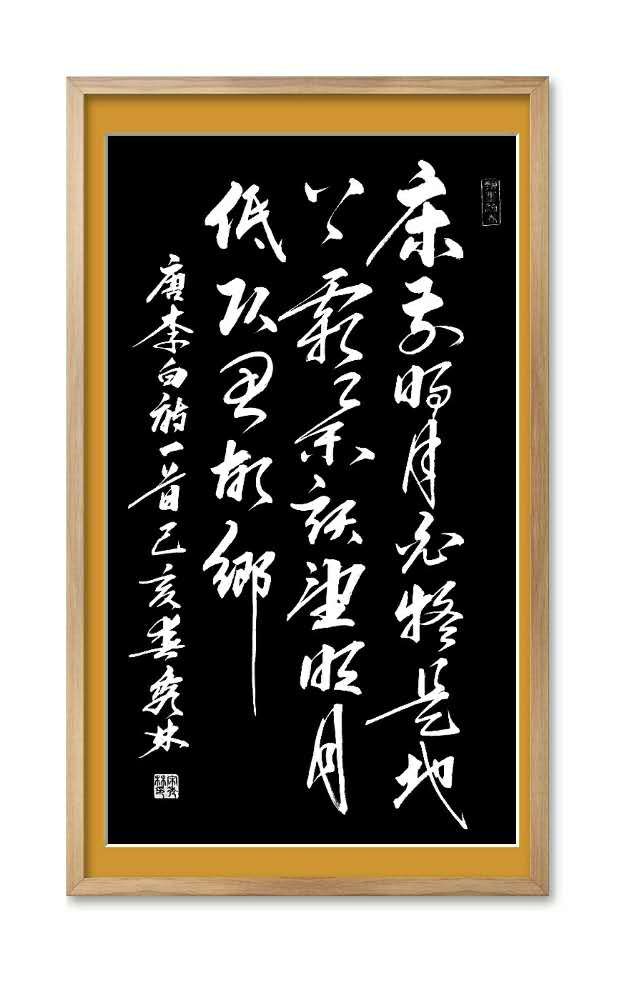 床前明月光疑是地
上霜举頭望明月
低頭思故鄉
唐李白詩一首己亥春秀林